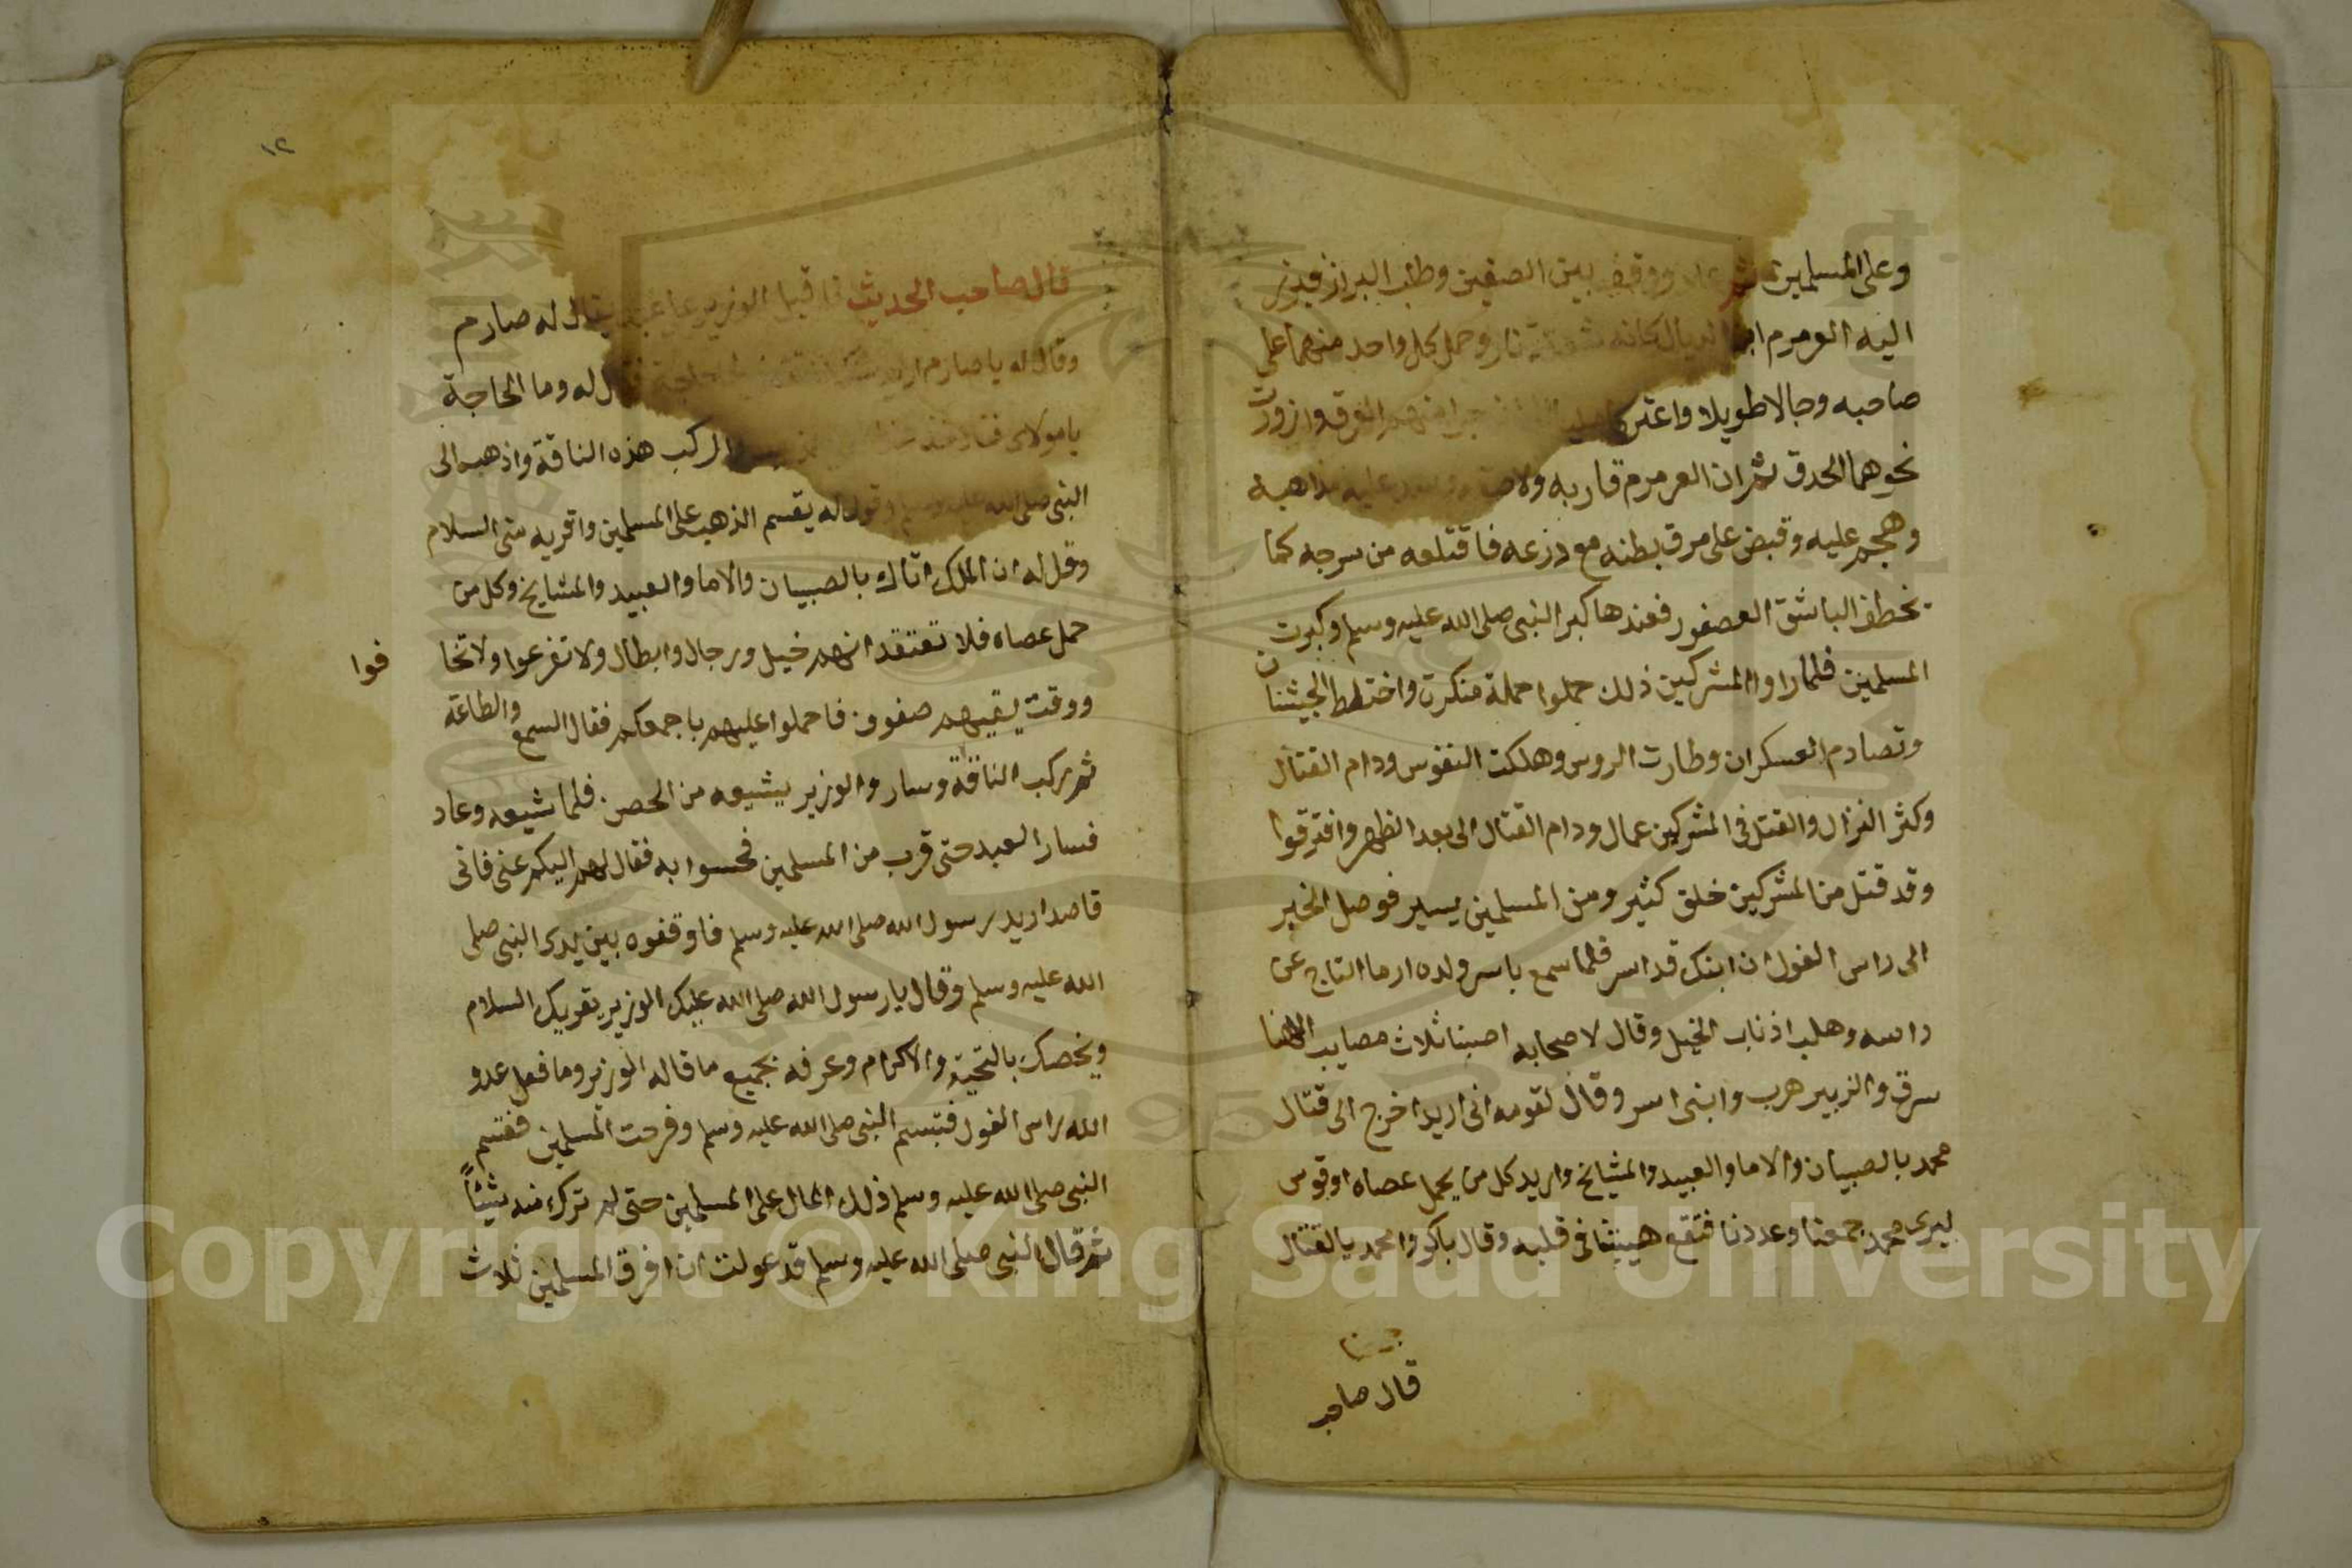 وعلى المسلمين ثم عاد ووقف بين الصفين وطلب البراز فبرز
اليه العرمرم كانه شعلة نار وحمل كل واحد منهما على
صاحبه وجالا طويلا واعتركا وازورت
نحوهما الحدق ثم ان العرمرم قاربه ولاصقه
وهجم عليه وقبض على مرق بطنه مع درعه فاقتلعه من سرجه كما
يخطف الباشق العصفور فعندها كبر النبي صلى الله عليه وسلم وكبرت
المسلمين فلما راوا المشركين ذلك حملوا حملة منكرة واختلط الجيشان
وتصادم العسكران وطارت الروس وهلكت النفوس ودام القتال
وكثر النزال والقتل في المشركين عمال ودام القتال الى بعد الظهر وافترقوا
وقد قتل من المشركين خلق كثير ومن المسلمين يسير فوصل الخبر
الى راس الغول ان ابنك قد اسر فلما سمع باسر ولده ارما التاج عن
راسه وهلب اذناب الخيل وقال لاصحابه اصبنا ثلاث مصايب الاهنا
سرق والزبير هرب وابني اسر وقال لقومه اني اريد اخرج الى قتال
محمد بالصبيان والاما والعبيد والمشايخ واريد كل من يحمل عصاه او قوس
ليرى محمد جمعنا وعددنا فتقع هيبتنا في قلبه وقال باكروا محمد بالقتال
قال صاحب
١٢
قال صاحب الحديث فاقبل الوزير على عبد يقال له صارم
وقال له يا صارم اريد منك ان تقضي لي حاجة فقال له وما الحاجة
يا مولاي اركب هذه الناقة واذهب الى
النبي صلى الله عليه وسلم وقول له يقسم الذهب على المسلمين واقريه مني السلام
وقل له ان الملك اتاك بالصبيان والاما والعبيد والمشايخ وكل من
حمل عصاه فلا تعتقد انهم خيل ورجال وابطال ولا تفزعوا ولا تخا
فوا
ووقت يقيهم صفوف فاحملوا عليهم باجمعكم فقال السمع والطاعة
ثم ركب الناقة وسار والوزير يشيعه من الحصن فلما شيعه وعاد
فسار العبد حتى قرب من المسلمين فحسوا به فقال لهم اليكم عني فاني
قاصدا اريد رسول الله صلى الله عليه وسلم فاوقفوه بين يدي النبي صلى
الله عليه وسلم وقال يا رسول الله صلى الله عليك الوزير يقريك السلام
ويخصك بالتحية والاكرام وعرفه بجميع ما قاله الوزير وما فعل عدو
الله راس الغول فتبسم النبي صلى الله عليه وسلم وفرحت المسلمين فقسم
النبي صلى الله عليه وسلم ذلك المال على المسلمين حتى لم ترك منه شيئاً
ثم قال النبي صلى الله عليه وسلم قد عولت ان افرق المسلمين ثلاث
Copyright © King Saud University
1957